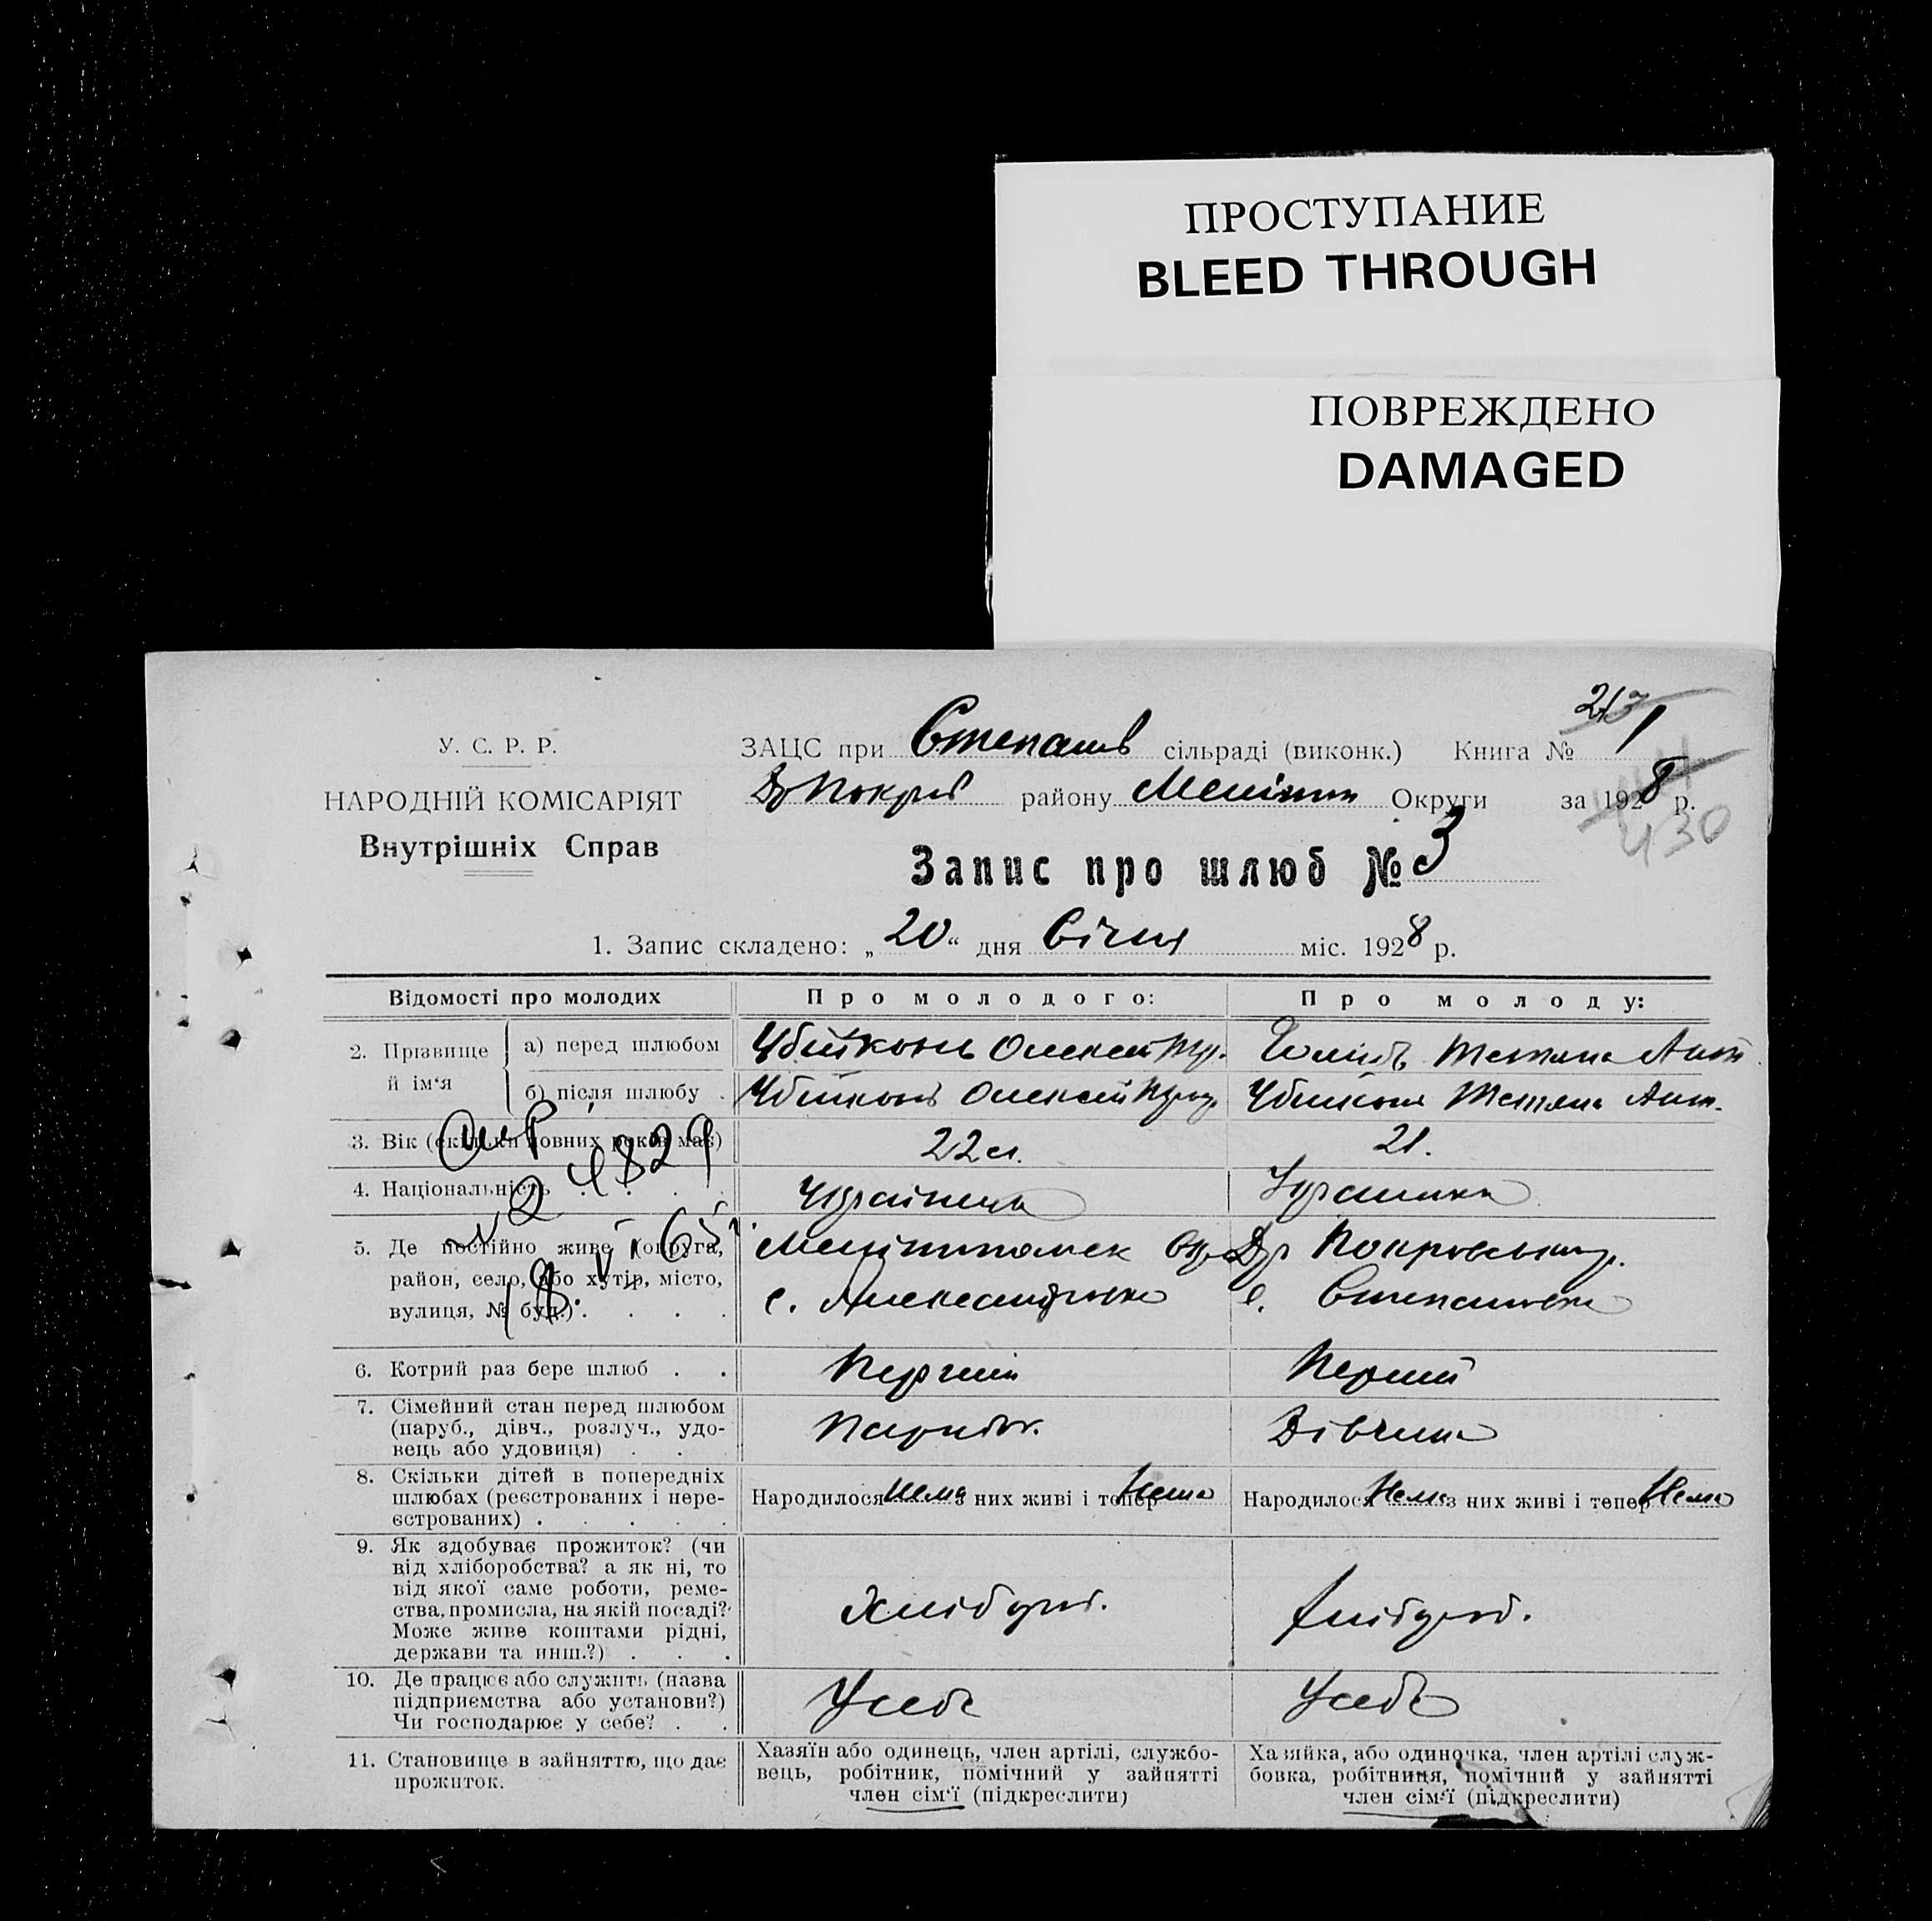 ПРОСТУПАНИЕ
BLEED THROUGH
ПОВРЕЖДЕНО
DAMAGED
У. С. Р. Р.
НАРОДНІЙ КОМІСАРІЯТ
Внутрішніх Справ
ЗАЦС при Степанів сільраді (виконк.) Книга № 1
району Округи за 1928 р.
430
Запис про шлюб № 3
1. Запис складено: „20“ дня Січня міс. 1928 р.
Відомості про молодих
Про молодого:
Про молоду:
2. Прізвище й ім‘я
а) перед шлюбом
Убийконь Олексей
Тетяна Ант
б) після шлюбу .
Убийконь Олексей
Убийконь Тетяна Ант.
3. Вік (скільки повних років має)
22 л.
21.
4. Національність . . . .
Українець
Українка
4829
5. Де постійно живе (округа,
район, село, або хутір, місто,
вулиця, № буд.) . . . .
с. Александровка
Покровськ р.
с. Степановка
6. Котрий раз бере шлюб . .
Перший
Перший
7. Сімейний стан перед шлюбом
(паруб., дівч., розлуч., удо-
вець або удовиця) . .
Парубок.
Дівчина
8. Скільки дітей в попередніх
шлюбах (реєстрованих і нере-
єстрованих) . . . . .
Народилося Нема з них живі і тепер Нема
Народилося Нема з них живі і тепер Нема
9. Як здобуває прожиток? (чи
від хліборобства? а як ні, то
від якої саме роботи, реме-
ства, промисла, на якій посаді?
Може живе коштами рідні,
держави та инш.?) . . .
Хлібороб.
Хлібороб.
10. Де працює або служить (назва
підприємства або установи?)
Чи господарює у себе? . .
У себе
У себе
11. Становище в зайняттю, що дає
прожиток.
Хазяїн або одинець, член артілі, службо-
вець, робітник, помічний у зайнятті
член сім‘ї (підкреслити)
Хазяйка, або одиночка, член артілі служ-
бовка, робітниця, помічний у зайнятті
член сім‘ї (підкреслити)